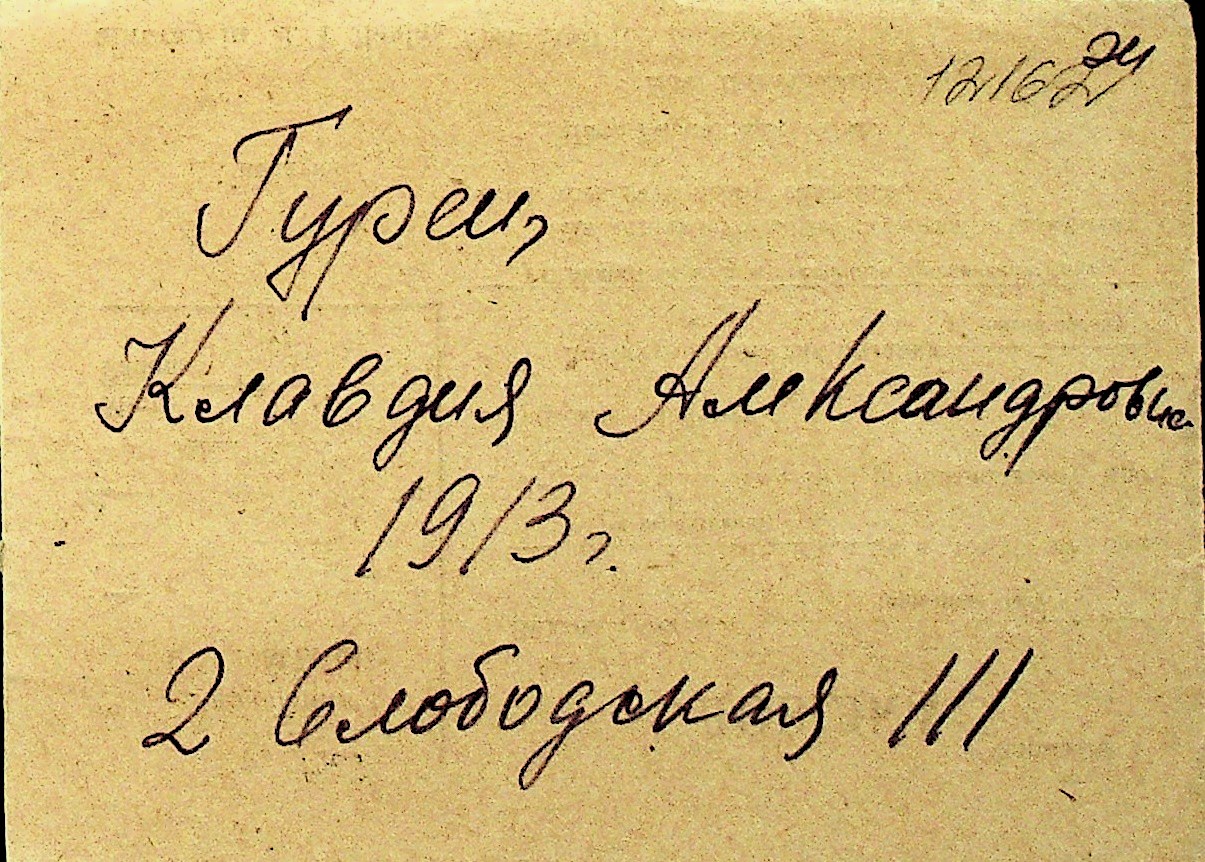 12162
Гурец
Клавдия Александровна
1913 г.
2 Слободская 111